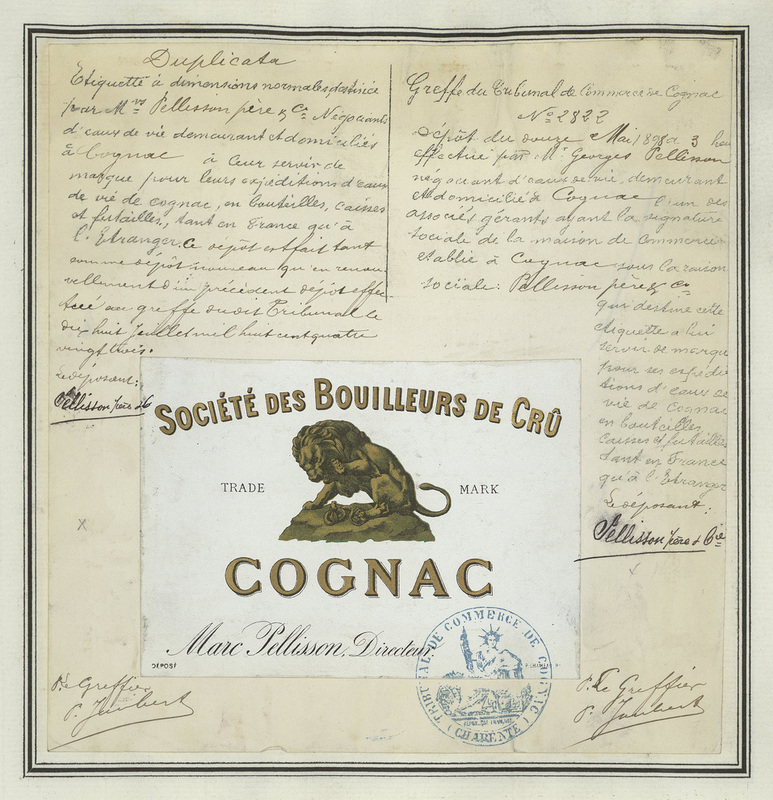 Duplicata
Etiquette à dimensions normales destinée
par M.rs Pellisson père & Cie Négociants
d'eaux de vie demeurant et domiciliés
à Cognac à leur servir de
marque pour leurs expéditions d'eaux
de vie de cognac, en bouteilles, caisses
et futailles, tant en France qu'à
l'Etranger. Ce dépôt est fait tant
comme dépôt nouveau qu'en renou-
vellement d'un précédent dépôt effec
tué au greffe dudit Tribunal le
dix huit Juillet mil huit cent quatre
vingt trois.
Le déposant:
Pellisson père & Cie
Greffe du Tribunal de Commerce de Cognac
No 2822
Dépôt du douze Mai à 3 heu
effectué par Mr Georges Pellisson
négociant d'eaux de vie, demeurant
et domicilié à Cognac l'un des
associés gérants ayant la signature
sociale de la maison de commerce
établie à Cognac sous la raison
sociale: Pellisson père & Cie
qui destine cette
étiquette à lui
servir de marque
pour ses expédi
tions d'eaux de
vie de cognac
en bouteilles,
caisses et futailles
tant en France
qu'à l'Etranger
Le déposant:
Pellisson père & Cie
SOCIÉTÉ DES BOUILLEURS DE CRÛ
TRADE MARK
COGNAC
Marc Pellisson, Directeur.
DÉPOSÉ
TRIBUNAL DE COMMERCE DE COGNAC
(CHARENTE)
P. Le Greffier
P. Le Greffier